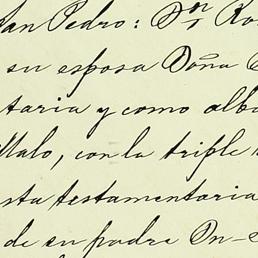 San Pedro: Dn Ro
su esposa Doña
taria y como alba
Malo, con la triple
sta testamentaria
de su padre On-